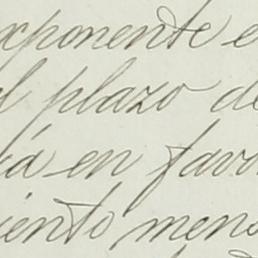 exponente e
el plazo de
rá en favo
iento mens